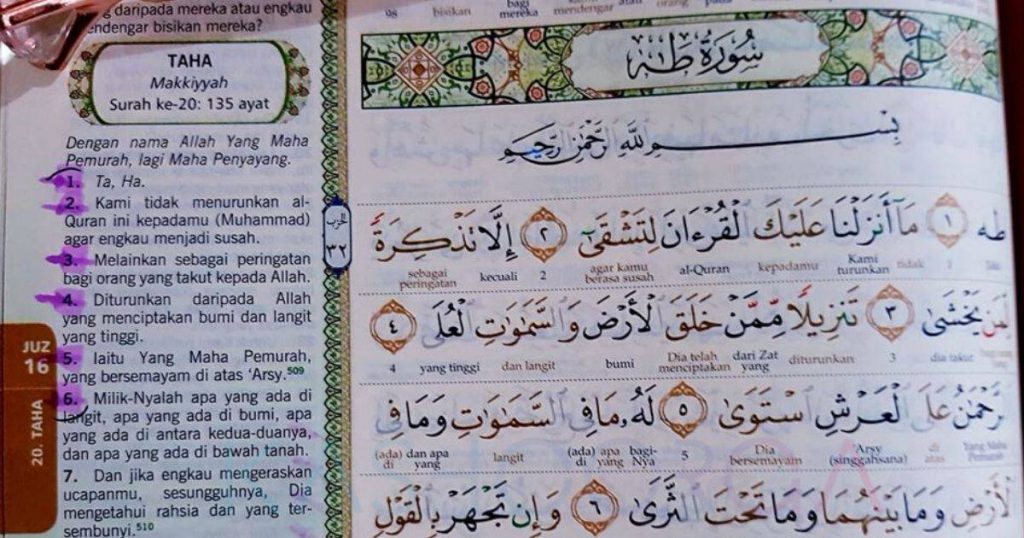 daripada mereka atau engkau
mendengar bisikan mereka?
TAHA
Makkiyyah
Surah ke-20: 135 ayat
Dengan nama Allah Yang Maha
Pemurah, lagi Maha Penyayang.
1. Ta, Ha.
2. Kami tidak menurunkan al-
Quran ini kepadamu (Muhammad)
agar engkau menjadi susah.
3. Melainkan sebagai peringatan
bagi orang yang takut kepada Allah.
4. Diturunkan daripada Allah
yang menciptakan bumi dan langit
yang tinggi.
5. Iaitu Yang Maha Pemurah,
yang bersemayam di atas ‘Arsy.509
6. Milik-Nyalah apa yang ada di
langit, apa yang ada di bumi, apa
yang ada di antara kedua-duanya,
dan apa yang ada di bawah tanah.
7. Dan jika engkau mengeraskan
ucapanmu, sesungguhnya, Dia
mengetahui rahsia dan yang ter-
sembunyi.510
JUZ
16
20. TAHA
الحزب
٣٢
98 bisikan bagi mereka mendengar atau orang pada
سُورَةُ طٰهٰ
بِسْمِ اللَّهِ الرَّحْمٰنِ الرَّحِيمِ
طه ١ مَآ أَنزَلْنَا عَلَيْكَ الْقُرْءَانَ لِتَشْقَىٰٓ ٢ إِلَّا تَذْكِرَةً
sebagai peringatan kecuali 2 agar kamu berasa susah al-Quran kepadamu Kami turunkan tidak 1
لِّمَن يَخْشَىٰ ٣ تَنزِيلًا مِّمَّنْ خَلَقَ الْأَرْضَ وَالسَّمَٰوَٰتِ الْعُلَى ٤
4 yang tinggi dan langit bumi Dia telah menciptakan dari Zat yang diturunkan 3 dia takut
رَّحْمَٰنُ عَلَى الْعَرْشِ اسْتَوَىٰ ٥ لَهُۥ مَا فِي السَّمَٰوَٰتِ وَمَا فِي
(ada) di dan apa yang langit (ada) di apa yang bagi-Nya 5 Dia bersemayam Arsy (singgahsana) di atas Yang Maha Pemurah
لْأَرْضِ وَمَا بَيْنَهُمَا وَمَا تَحْتَ الثَّرَىٰ ٦ وَإِن تَجْهَرْ بِالْقَوْلِ